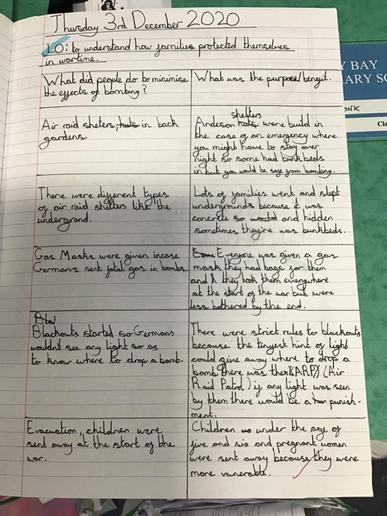 Thursday 3rd December 2020
LO: to understand how families protected themselves
in wartime.
What did people do to minimise
the effects of bombing?
What was the purpose/benefit.
Air raid shelters, huts in back
gardens.
shelters
Anderson huts were build in
the case of an emergency where
you might have to stay over
night so some had bunk beds
in but you would be safe from bombing.
There were different types
of air raid shelters like the
underground.
Lots of families went and slept
undergrounds because it was
concrete so and hidden
sometimes they're was bunkbeds.
Gas Masks were given incase
Germans sent fatal gas in bombs.
Everyone was given a gas
mask they had bags for them
and they took them everywhere
at the start of the war but were
less bothered by the end.
Blackouts started so Germans
wouldn't see any light so as
to know where to drop a bomb.
There were strict rules to blackouts
because the tinyest hint of light
could give away where to drop a
bomb there was the (ARP) (Air
Raid Patrol) if any light was seen
by them there would be a punish-
ment.
Evacuation, children were
sent away at the start of the
war.
Children under the age of
five and six and pregnant women
were sent away because they were
more vunerable.
BAY
ARY SC